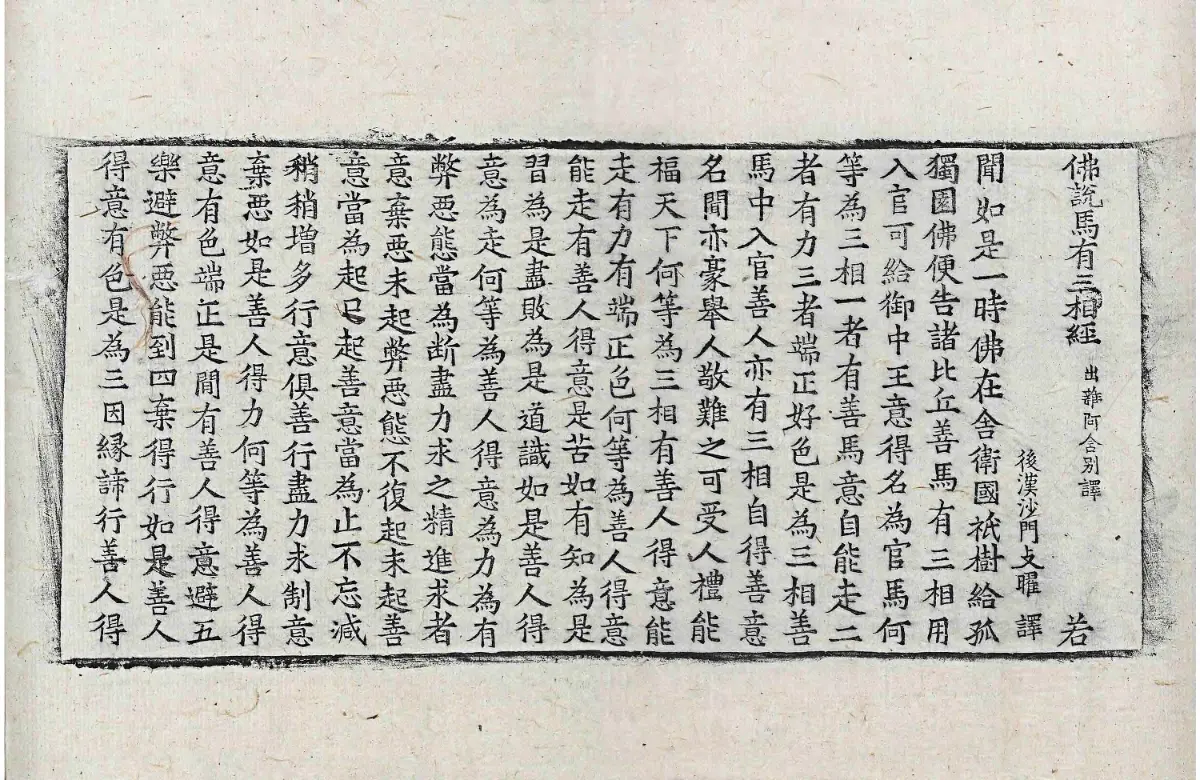 佛說馬有三相經 出雜阿含别譯 若
後漢沙門支曜 譯
聞如是一時佛在舍衛國祇樹給孤
獨園佛便告諸比丘善馬有三相用
入官可給御中王意得名為官馬何
等為三相一者有善馬意自能走二
者有力三者端正好色是為三相善
馬中入官善人亦有三相自得善意
名聞亦豪舉人敬難之可受人禮能
福天下何等為三相有善人得意能
走有力有端正色何等為善人得意
能走有善人得意是苦如有知為是
習為是盡敗為是道識如是善人得
意為走何等為善人得意為力為有
弊惡態當為断盡力求之精進求者
意棄惡未起弊惡態不復起未起善
意當為起已起善意當為止不忘減
稍稍增多行意俱善行盡力求制意
棄惡如是善人得力何等為善人得
意有色端正是間有善人得意避五
樂避弊惡能到四棄得行如是善人
得意有色是為三因緣諦行善人得